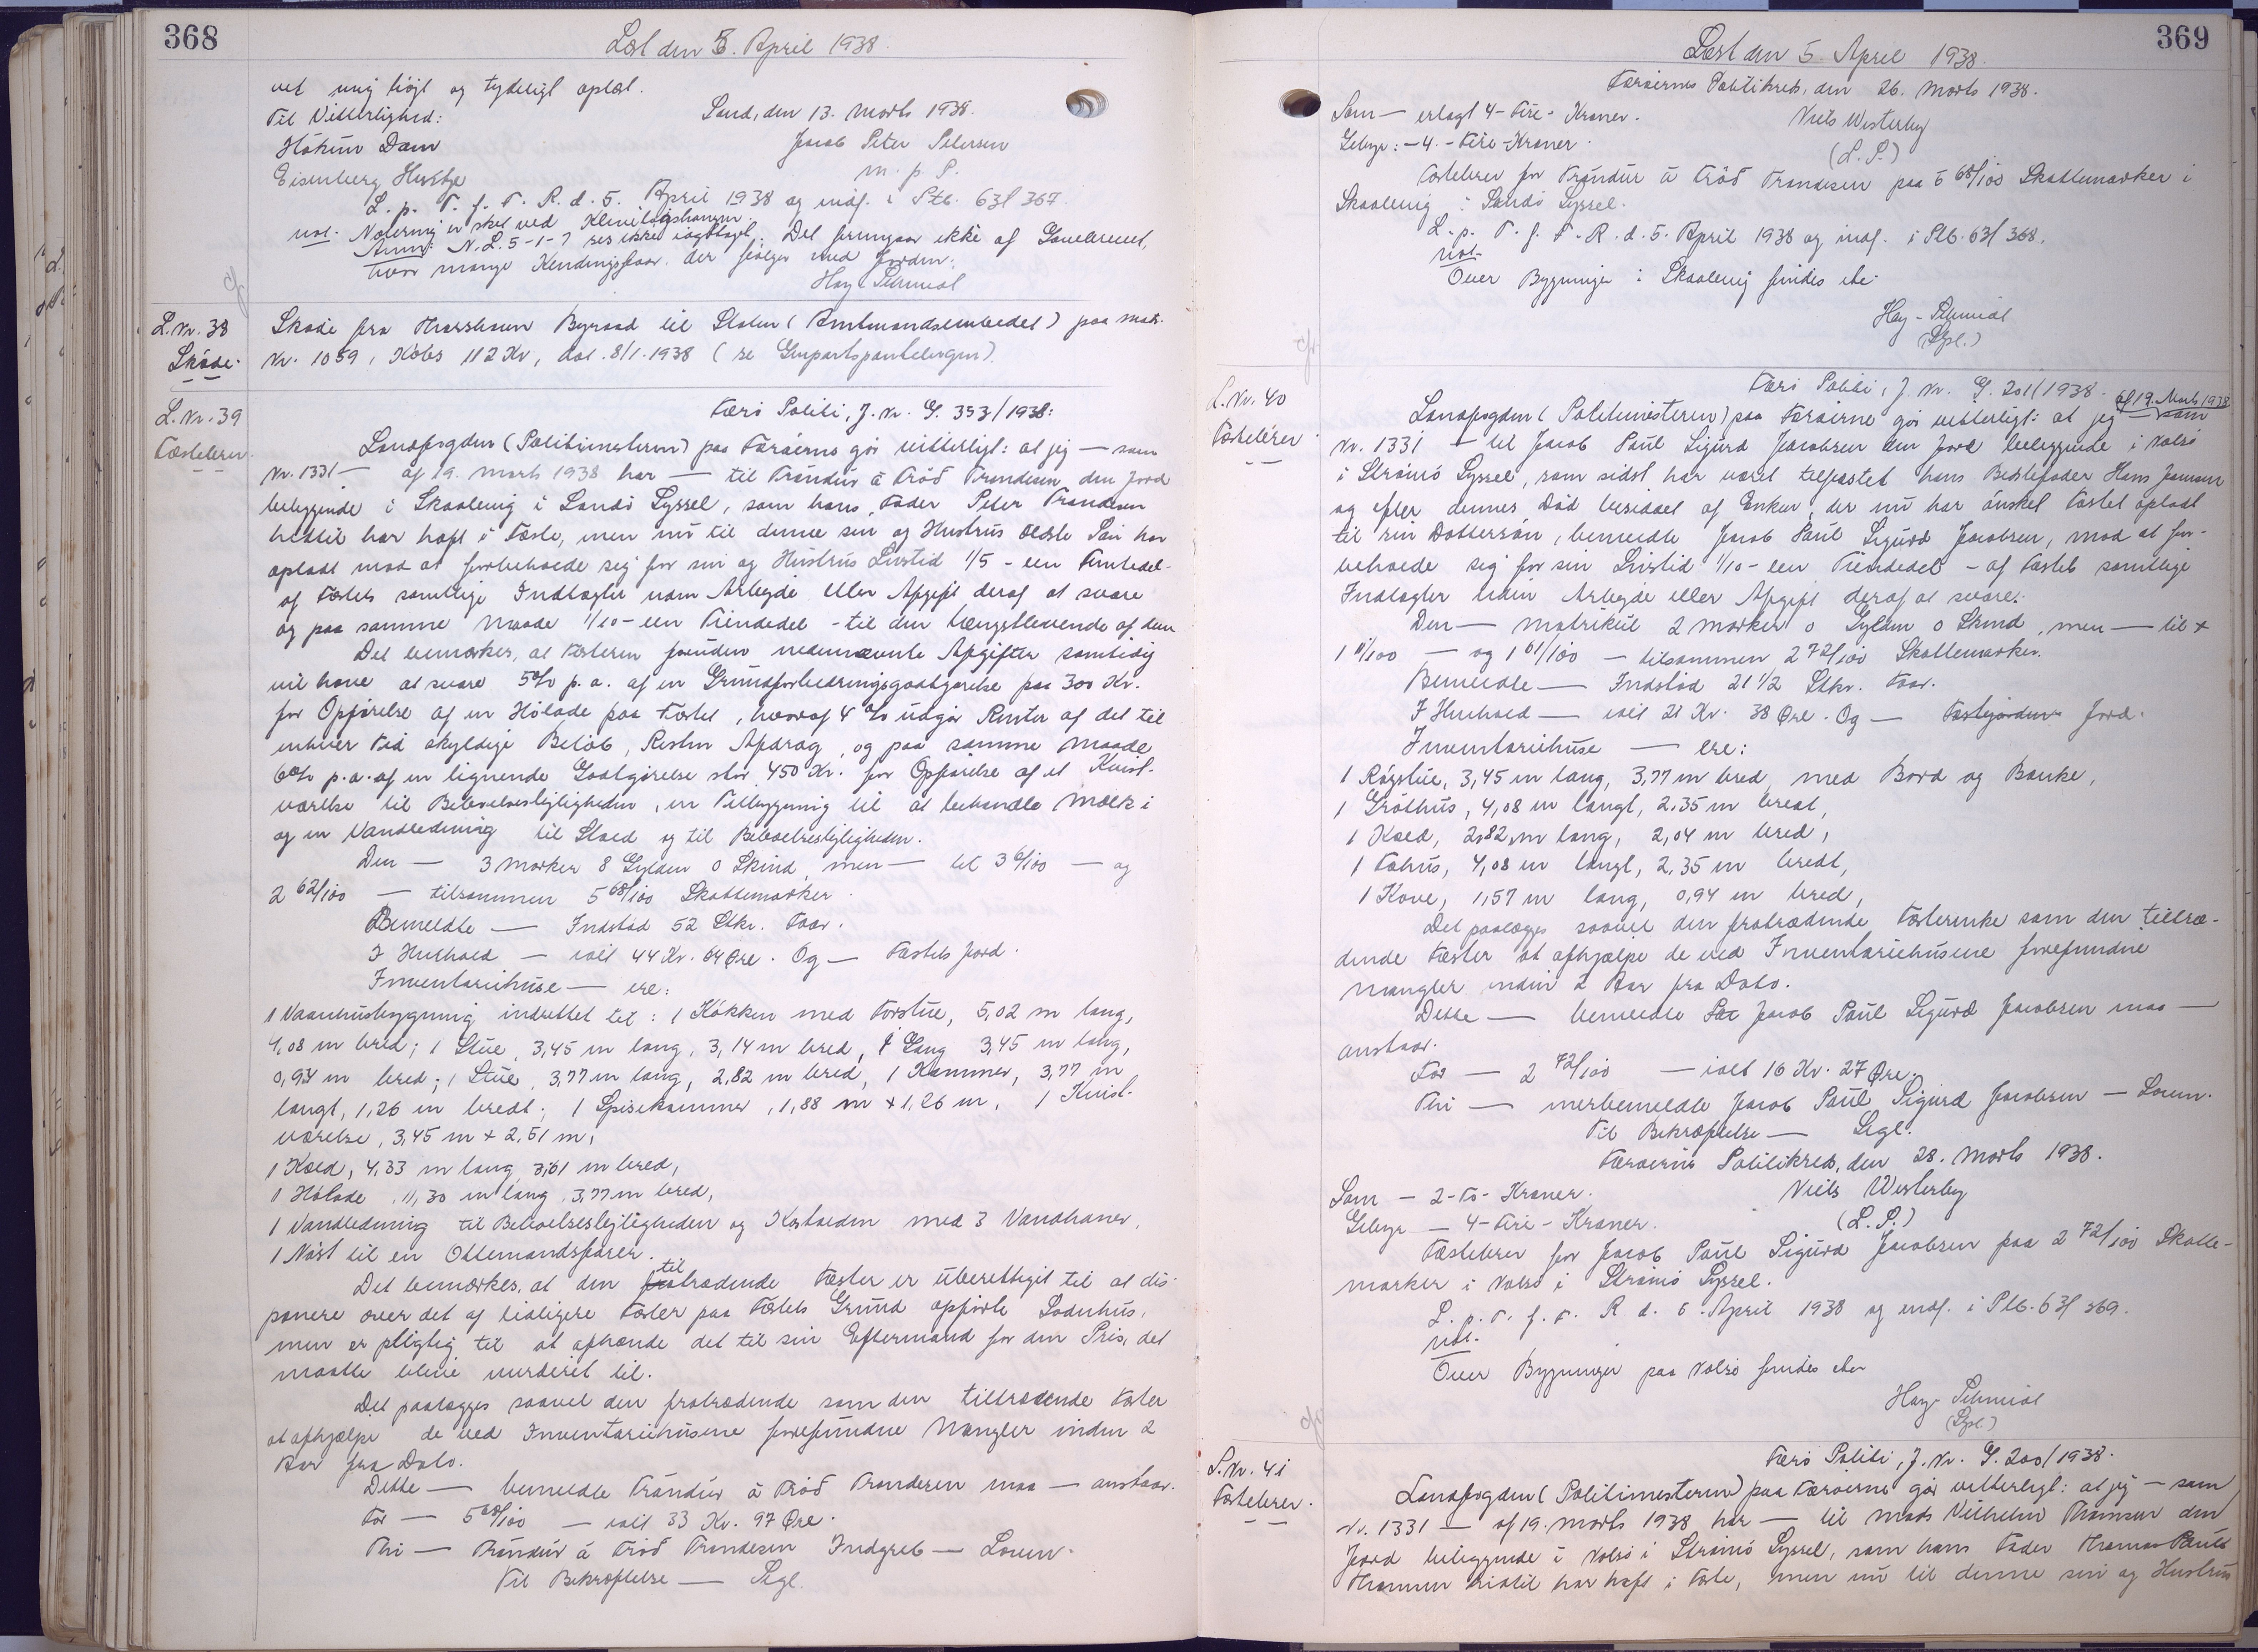 368
Læst den 5. April 1938.
ved mig höjt og tydeligt oplæst.
Til Vitterlighed:
Sand, den 13. Marts 1938.
Hákun Dam
Jacob Peter Petersen
Eisenberg
m. p. P.
L. p. T. f. F. R. d. 5. April 1938 og indf. i Ptb. 63f 367.
not. Notering er sket ved
Anm: N. L. 5-1-7 ses ikke iagttaget. Det fremgaar ikke af Gavebrevet,
hvor mange Kendingsfaar der følger med Jorden.
Hay-Schmidt
L. Nr. 38
Skøde.
Skøde fra Thorshavn Byraad til Staten (Amtmandsembedet) paa matr.
Nr. 1059, Købes 112 Kr, dat. 8/1-1938 (se Genpartspantebogen).
L. Nr. 39
Fæstebrev.
Færø Politi, J. Nr. G. 393/1938:
Landfogden (Politimesteren) paa Færøerne gör vitterligt: at jeg — som
Nr. 1331 — af 19. Marts 1938 har — til Tróndur á Tröð Trondesen den Jord
beliggende i Skaaleving i Sandö Syssel, som hans Fader Peter Trondesen
hidtil har haft i Fæste, men nu til denne sin og Hustrus ældste Sön har
opladt mod at forbeholde sig for sin og Hustrus Livstid 1/5 - een Femtedel -
af Fæstets samtlige Indtægter uden Arbejde eller Afgift deraf at svare
og paa samme Maade 1/10 - een Tiendedel - til den længstlevende af dem
Det bemærkes, at Fæsteren foruden nedennævnte Afgifter samtidig
vil have at svare 5% p. a. af en Grundforbedringsgodtgørelse paa 300 Kr.
for Opførelse af en Hölade paa Fæstet, hvoraf 4% udgör Renter af det til
enhver Tid skyldige Belöb, Resten Afdrag, og paa samme Maade
6% p. a. af en lignende Godtgörelse stor 450 Kr. for Opförelse af et Kvist-
værelse til Beboelseslejligheden, en Tilbygning til at behandle Mælk i
og en Vandledning til Stald og til Beboelseslejligheden.
Den — 3 Marker 8 Gylden 0 Skind, men — til 3 6/100 — og
2 62/100 — tilsammen 5 68/100 Skattemarker.
Bemeldte — Indstöd 52 Stkr. Faar.
I Henhold — ialt 44 Kr. 64 Øre. Og — Fæstets Jord.
Inventariehuse — ere:
1 Vaanhusbygning indrettet til: 1 Kökken med Forstue, 5,02 m lang,
4,08 m bred; 1 Stue, 3,45 m lang, 3,14 m bred, 1 Gang 3,45 m lang,
0,94 m bred; 1 Stue, 3,77 m lang, 2,82 m bred, 1 Kammer, 3,77 m
langt, 1,26 m bredt; 1 Spisekammer, 1,88 m x 1,26 m, 1 Kvist-
værelse, 3,45 m x 2,51 m,
1 Kostald, 4,33 m lang 3,61 m bred,
1 Hölade, 11,30 m lang, 3,77 m bred,
1 Vandledning til Beboelseslejligheden og Kostalden med 3 Vandhaner,
1 Nöst til en Ottemandsfarer.
Det bemærkes, at den tiltrædende Fæster er uberettiget til at dis-
ponere over det af tidligere Fæster paa Fæstets Grund opförte Sodnhus,
men er pligtig til at afhænde det til sin Eftermand for den Pris, det
maatte blive vurderet til.
Det paalægges saavel den fratrædende som den tiltrædende Fæster
at afhjælpe de ved Inventariehusene forefundne Mangler inden 2
Aar fra Dato.
Dette — bemeldte Tróndur á Tröð Trondesen maa — anstaar.
For — 5 68/100 — ialt 33 Kr. 97 Øre.
Thi — Tróndur á Tröð Trondesen Indgreb — Loven.
Til Bekræftelse — Segl.
369
Læst den 5. April 1938.
Færøernes Politikreds, den 26. Marts 1938.
Som — erlagt 4 - Fire - Kroner.
Niels Westerby
Gebyr: - 4. - Fire - Kroner.
(L. S.)
Fæstebrev for Tróndur á Tröð Trondesen paa 5 68/100 Skattemarker i
Skaaleving i Sandö Syssel.
L. p. T. f. F. R. d. 5. April 1938 og indf. i Ptb. 63f 368.
not.
Over Bygninger i Skaaleving findes
Hay-Schmidt
(Sgl.)
L. Nr. 40
Fæstebrev.
Færö Politi, J. Nr. G. 201/1938.
Landfogden (Politimesteren) paa Færøerne gör vitterligt: at jeg — som
af 19. Marts 1938
Nr. 1331 — til Jacob Paul Sigurd Jacobsen den Jord beliggende i Nolsö
i Strömö Syssel, som sidst har været tilfæstet hans Bedstefader Hans Jensen
og efter dennes Död besiddet af Enken, der nu har önsket Fæstet opladt
til sin Dottersön, bemeldte Jacob Paul Sigurd Jacobsen, mod at for-
beholde sig for sin Livstid 1/10 - een Tiendedel - af Fæstets samtlige
Indtægter uden Arbejde eller Afgift deraf at svare.
Den — Matrikul 2 Marker 0 Gylden 0 Skind, men — til
1 11/100 — og 1 61/100 — tilsammen 2 72/100 Skattemarker.
Bemeldte — Indstöd 21 1/2 Stkr. Faar.
I Henhold — ialt 21 Kr. 38 Øre. Og — Fæstejordens Jord.
Inventariehuse — ere:
1 Rögstue, 3,45 m lang, 3,77 m bred, med Bord og Bænke,
1 Gróthus, 4,08 m langt, 2,35 m bredt,
1 Kostald, 2,82 m lang, 2,04 m bred,
1 Fæhus, 4,08 m langt, 2,35 m bredt,
1 Kove, 1,57 m lang, 0,94 m bred,
Det paalægges saavel den fratrædende Fæsterenke som den tiltræ-
dende Fæster at afhjælpe de ved Inventariehusene forefundne
Mangler inden 2 Aar fra Dato.
Dette — bemeldte Jacob Paul Sigurd Jacobsen maa —
anstaar.
For — 2 72/100 — ialt 16 Kr. 27 Øre.
Thi — merbemeldte Jacob Paul Sigurd Jacobsen — Loven.
Til Bekræftelse — Segl.
Færøernes Politikreds, den 28. Marts 1938.
Som — 2 - To - Kroner.
Niels Westerby
Gebyr — 4 - Fire - Kroner.
(L. S.)
Fæstebrev for Jacob Paul Sigurd Jacobsen paa 2 72/100 Skatte-
marker i Nolsö i Strömö Syssel.
L. p. T. f. F. R d. 5. April 1938 og indf. i Ptb. 63f 369.
not.
Over Bygninger paa Nolsö findes
Hay-Schmidt
(Sgl.)
L. Nr. 41
Fæstebrev.
Færö Politi, J. Nr. G. 200/1938.
Landfogden (Politimesteren) paa Færøerne gör vitterligt: at jeg — som
Nr. 1331 — af 19. Marts 1938 har — til Mads Vilhelm Thomsen den
Jord beliggende i Nolsö i Strömö Syssel, som hans Fader Thomas Pauli
Thomsen hidtil har haft i Fæste, men nu til denne sin og Hustrus